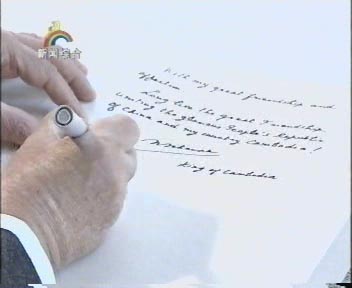 新闻综合
With my great friendship and
affection
Long live the great Friendship
uniting the glorious People's Republic
of China and my country Cambodia!
King of Cambodia